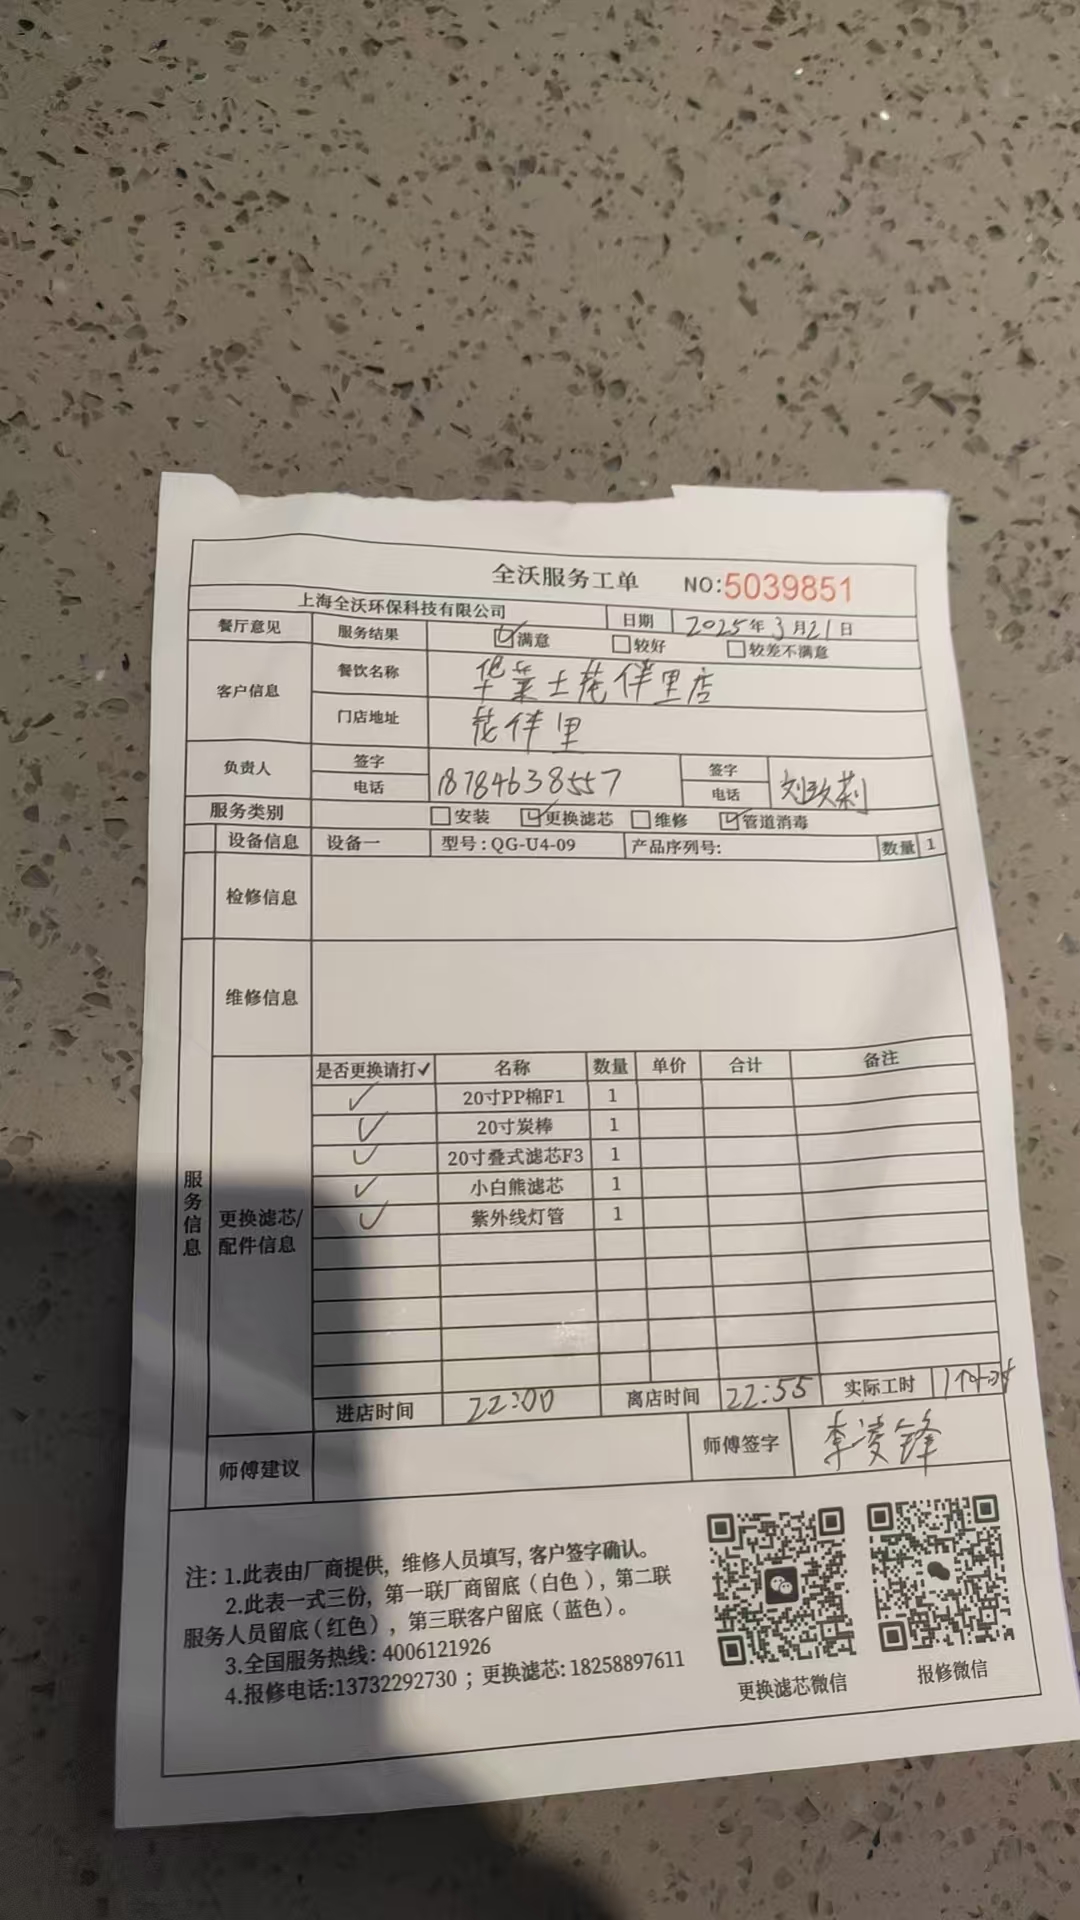 全沃服务工单 NO:5039851
上海全沃环保科技有限公司 日期 2025年3月21日
餐厅意见 服务结果 ☑满意 □较好 □较差不满意
客户信息 餐饮名称 华莱士花伴里店
门店地址 花伴里
负责人 签字 签字
电话 18784638557 电话 刘玖莉
服务类别 □安装 ☑更换滤芯 □维修 ☑管道消毒
设备信息 设备一 型号:QG-U4-09 产品序列号: 数量 1
检修信息
维修信息
服务信息
更换滤芯/配件信息
是否更换请打✓ 名称 数量 单价 合计 备注
✓ 20寸PP棉F1 1
✓ 20寸炭棒 1
✓ 20寸叠式滤芯F3 1
✓ 小白熊滤芯 1
✓ 紫外线灯管 1
进店时间 22:00 离店时间 22:55 实际工时 1个小时
师傅建议 师傅签字 李凌锋
注: 1.此表由厂商提供, 维修人员填写, 客户签字确认。
2.此表一式三份, 第一联厂商留底(白色), 第二联
服务人员留底(红色), 第三联客户留底(蓝色)。
3.全国服务热线: 4006121926
4.报修电话:13732292730 ; 更换滤芯: 18258897611
更换滤芯微信 报修微信